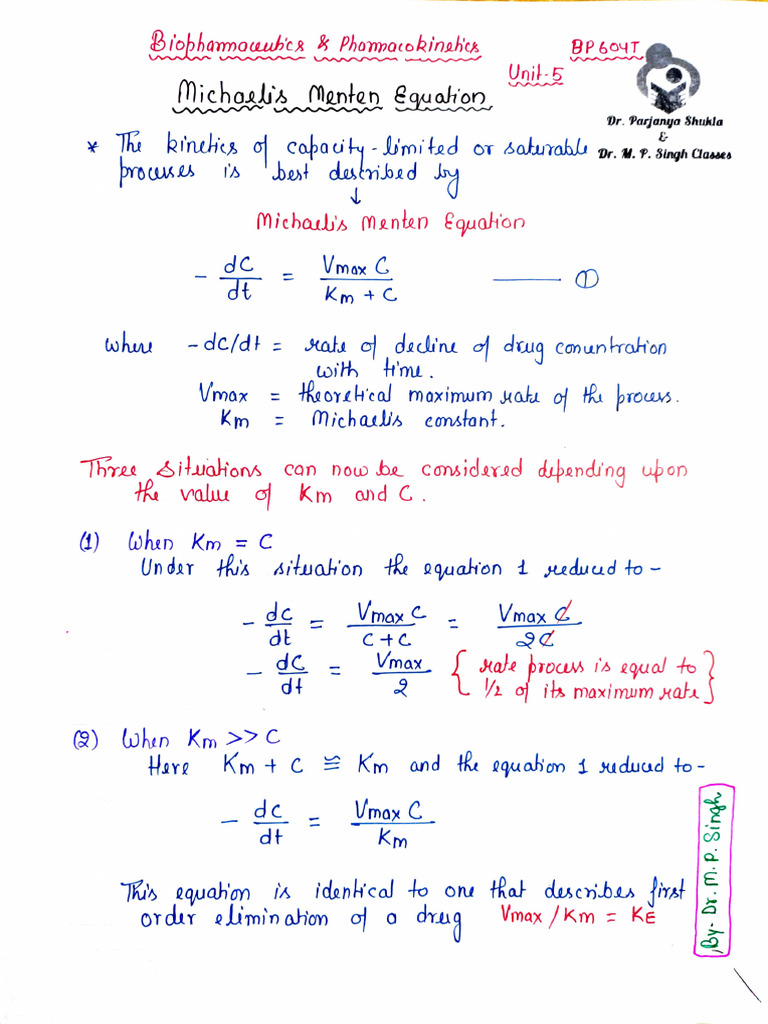 Biopharmaceutics & Pharmacokinetics BP604T
Unit-5
Michaelis Menten Equation
Dr. Parjanya Shukla
&
Dr. M. P. Singh Classes
* The kinetics of capacity-limited or saturable
processes is best described by
↓
Michaelis Menten Equation
- dC/dt = Vmax C / Km + C ——— ①
where -dC/dt = rate of decline of drug concentration
with time.
Vmax = theoretical maximum rate of the process.
Km = Michaelis constant.
Three situations can now be considered depending upon
the value of Km and C.
(1) When Km = C
Under this situation the equation 1 reduced to -
- dc/dt = Vmax C / C + C = Vmax C / 2C
- dC/dt = Vmax / 2 { rate process is equal to
1/2 of its maximum rate }
(2) When Km >> C
Here Km + C ≅ Km and the equation 1 reduced to -
- dc/dt = Vmax C / Km
This equation is identical to one that describes first
order elimination of a drug Vmax / Km = KE
By- Dr. M. P. Singh